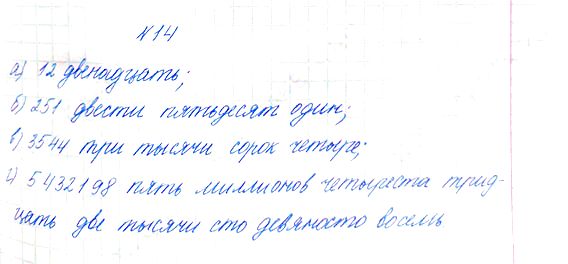 №14
а) 12 двенадцать;
б) 251 двести пятьдесят один;
в) 3544 три тысячи сорок четыре;
г) 5432198 пять миллионов четыреста трид-
цать две тысячи сто девяносто восемь